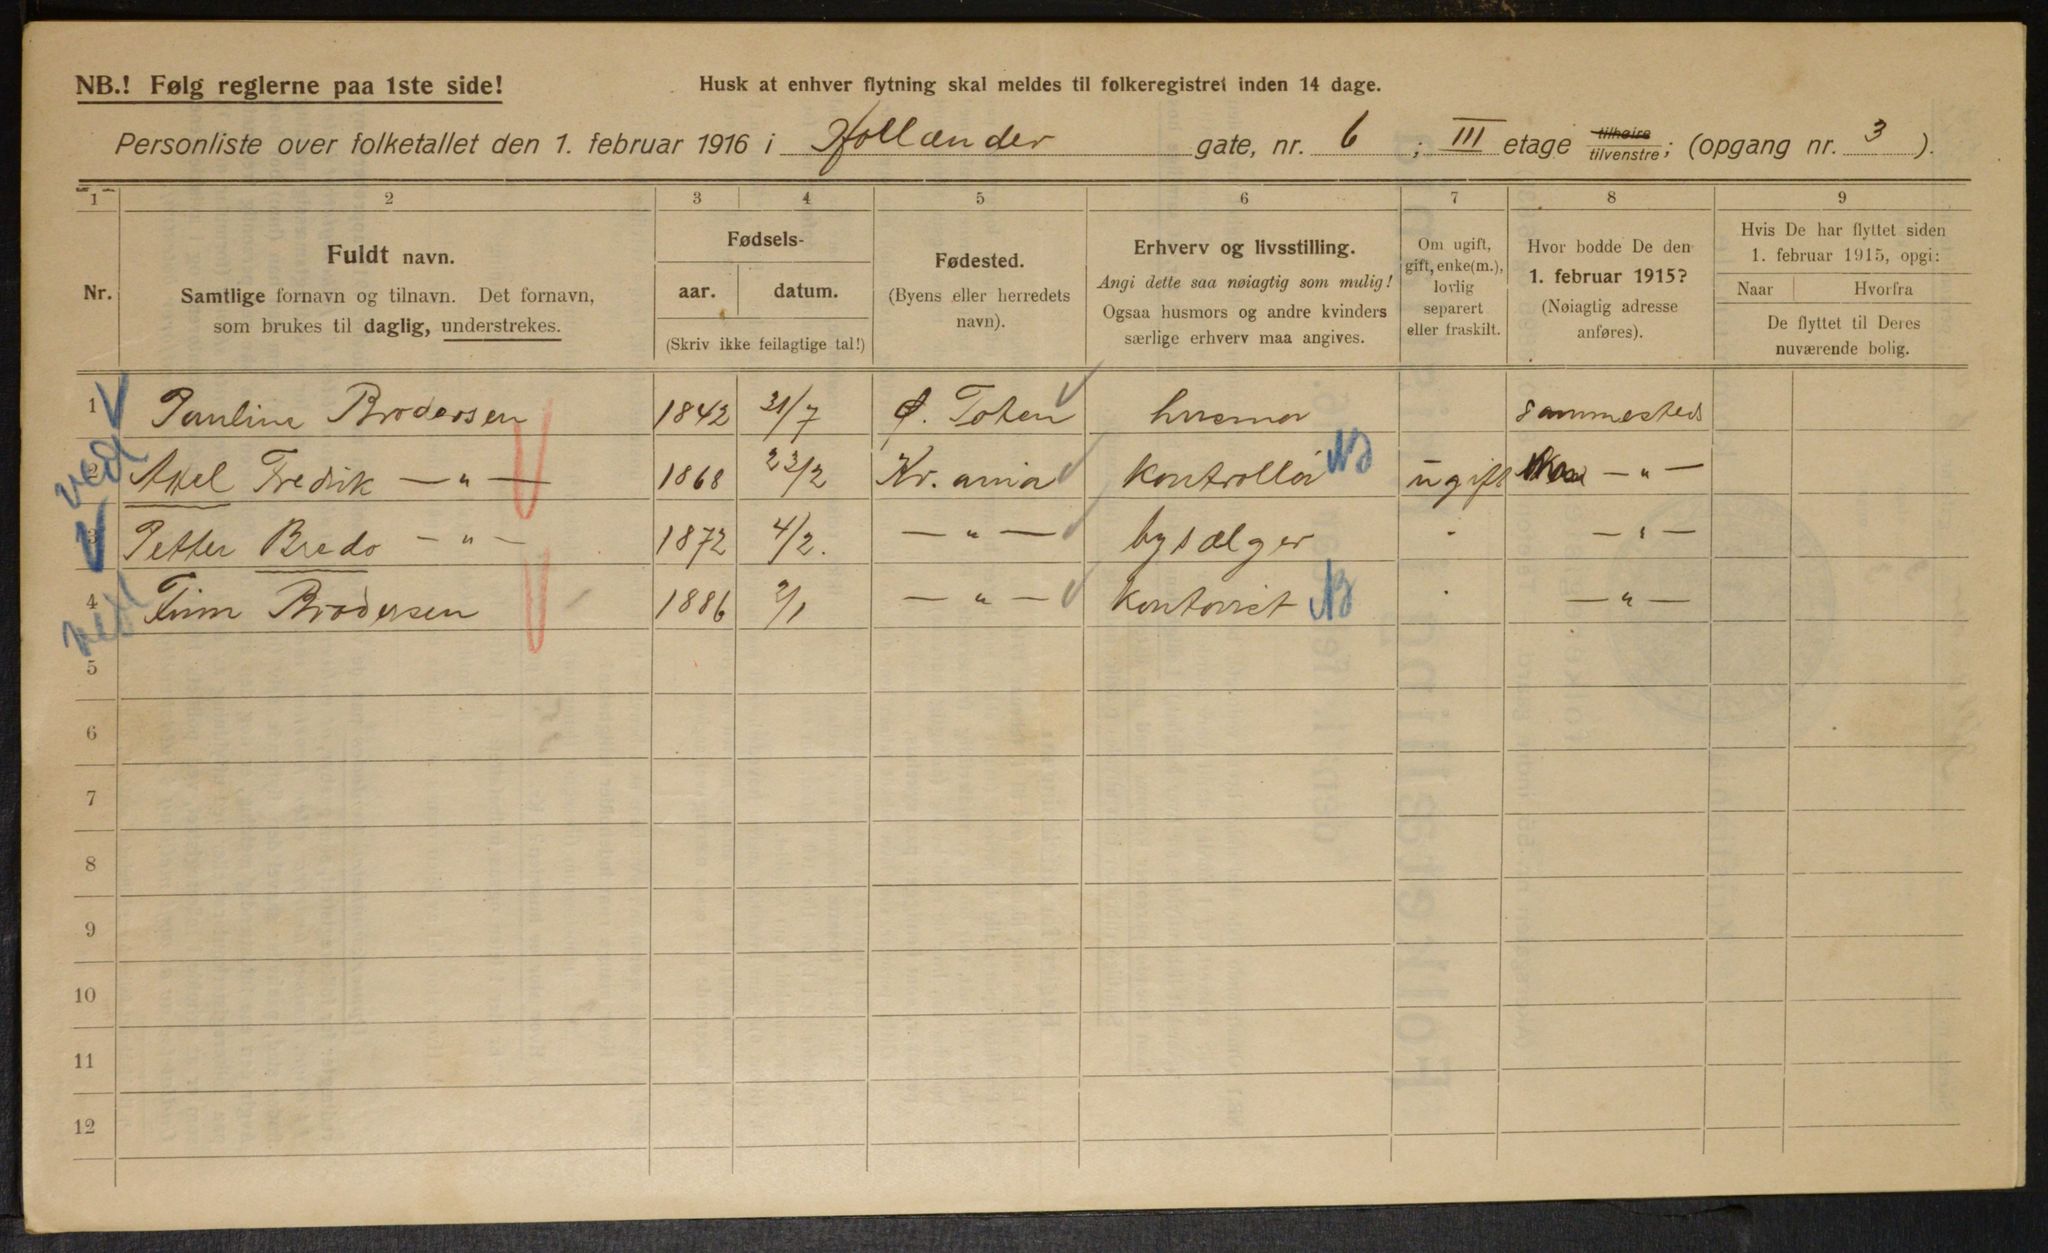 NB.! Følg reglerne paa 1ste side!
Husk at enhver flytning skal meldes til folkeregistret inden 14 dage.
Personliste over folketallet den 1. februar 1916 i Hollænder gate, nr. 6 ; III etage tilhøire tilvenstre; (opgang nr. 3 ).
1 2 3 4 5 6 7 8 9
Nr.
Fuldt navn.
Samtlige fornavn og tilnavn. Det fornavn,
som brukes til daglig, understrekes.
Fødsels-
aar. datum.
(Skriv ikke feilagtige tal!)
Fødested.
(Byens eller herredets
navn).
Erhverv og livsstilling.
Angi dette saa nøiagtig som mulig!
Ogsaa husmors og andre kvinders
særlige erhverv maa angives.
Om ugift,
gift, enke(m.),
lovlig
separert
eller fraskilt.
Hvor bodde De den
1. februar 1915?
(Nøiagtig adresse
anføres).
Hvis De har flyttet siden
1. februar 1915, opgi:
Naar Hvorfra
De flyttet til Deres
nuværende bolig.
1 Pauline Brodersen 1842 21/7 Ø. Toten husmor sammesteds
2 Axel Fredrik — „ — 1868 23/2 Kr.ania kontrollør ugift — „ —
3 Petter Bredo — „ — 1872 4/2. — „ — bysælger „ — „ —
4 Finn Brodersen 1886 2/1 — „ — kontorist „ — „ —
5
6
7
8
9
10
11
12